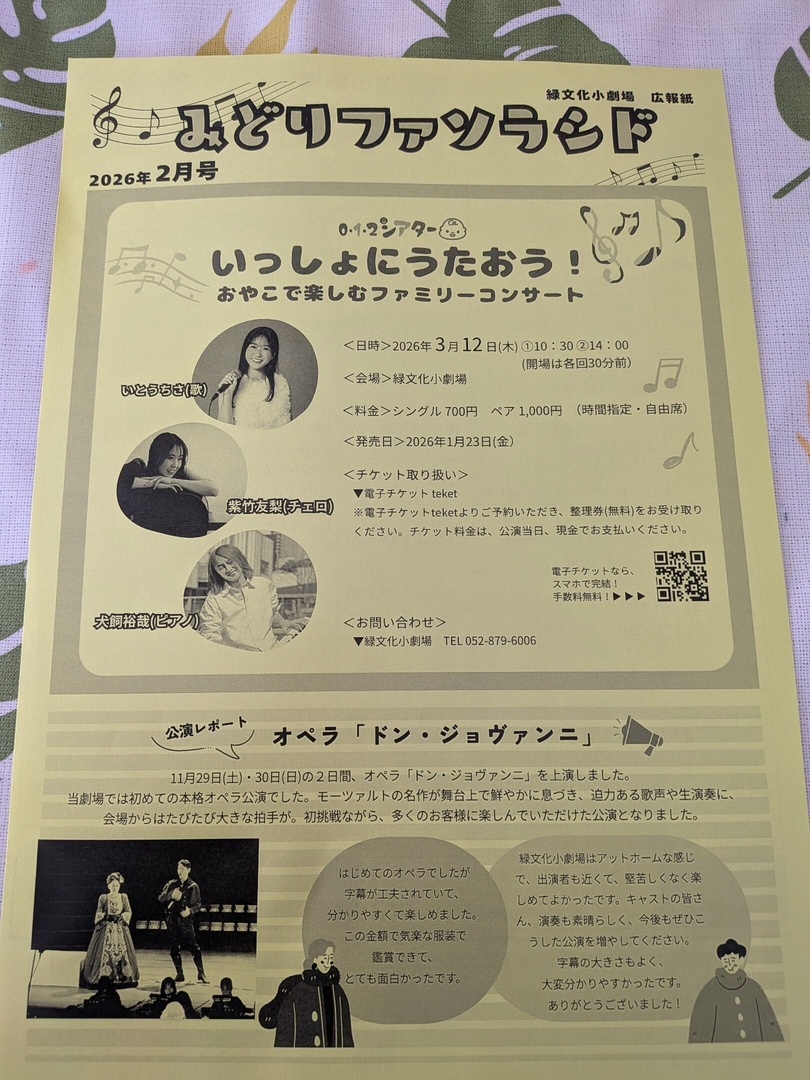 緑文化小劇場　広報紙
みどりファソラシド
2026年2月号
0・1・2歳シアター
いっしょにうたおう！
おやこで楽しむファミリーコンサート
いとうちさ(歌)
紫竹友梨(チェロ)
犬飼裕哉(ピアノ)
＜日時＞2026年3月12日(木) ①10：30 ②14：00
(開場は各回30分前）
＜会場＞緑文化小劇場
＜料金＞シングル 700円　ペア 1,000円　（時間指定・自由席）
＜発売日＞2026年1月23日(金）
＜チケット取り扱い＞
▼電子チケット teket
※電子チケットteketよりご予約いただき、整理券(無料)をお受け取り
ください。チケット料金は、公演当日、現金でお支払いください。
電子チケットなら、
スマホで完結！
手数料無料！▶▶▶
＜お問い合わせ＞
▼緑文化小劇場　TEL 052-879-6006
公演レポート
オペラ「ドン・ジョヴァンニ」
11月29日(土)・30日(日)の２日間、オペラ「ドン・ジョヴァンニ」を上演しました。
当劇場では初めての本格オペラ公演でした。モーツァルトの名作が舞台上で鮮やかに息づき、迫力ある歌声や生演奏に、
会場からはたびたび大きな拍手が。初挑戦ながら、多くのお客様に楽しんでいただけた公演となりました。
はじめてのオペラでしたが
字幕が工夫されていて、
分かりやすくて楽しめました。
この金額で気楽な服装で
鑑賞できて、
とても面白かったです。
緑文化小劇場はアットホームな感じ
で、出演者も近くて、堅苦しくなく楽
しめてよかったです。キャストの皆さ
ん、演奏も素晴らしく、今後もぜひこ
うした公演を増やしてください。
字幕の大きさもよく、
大変分かりやすかったです。
ありがとうございました！